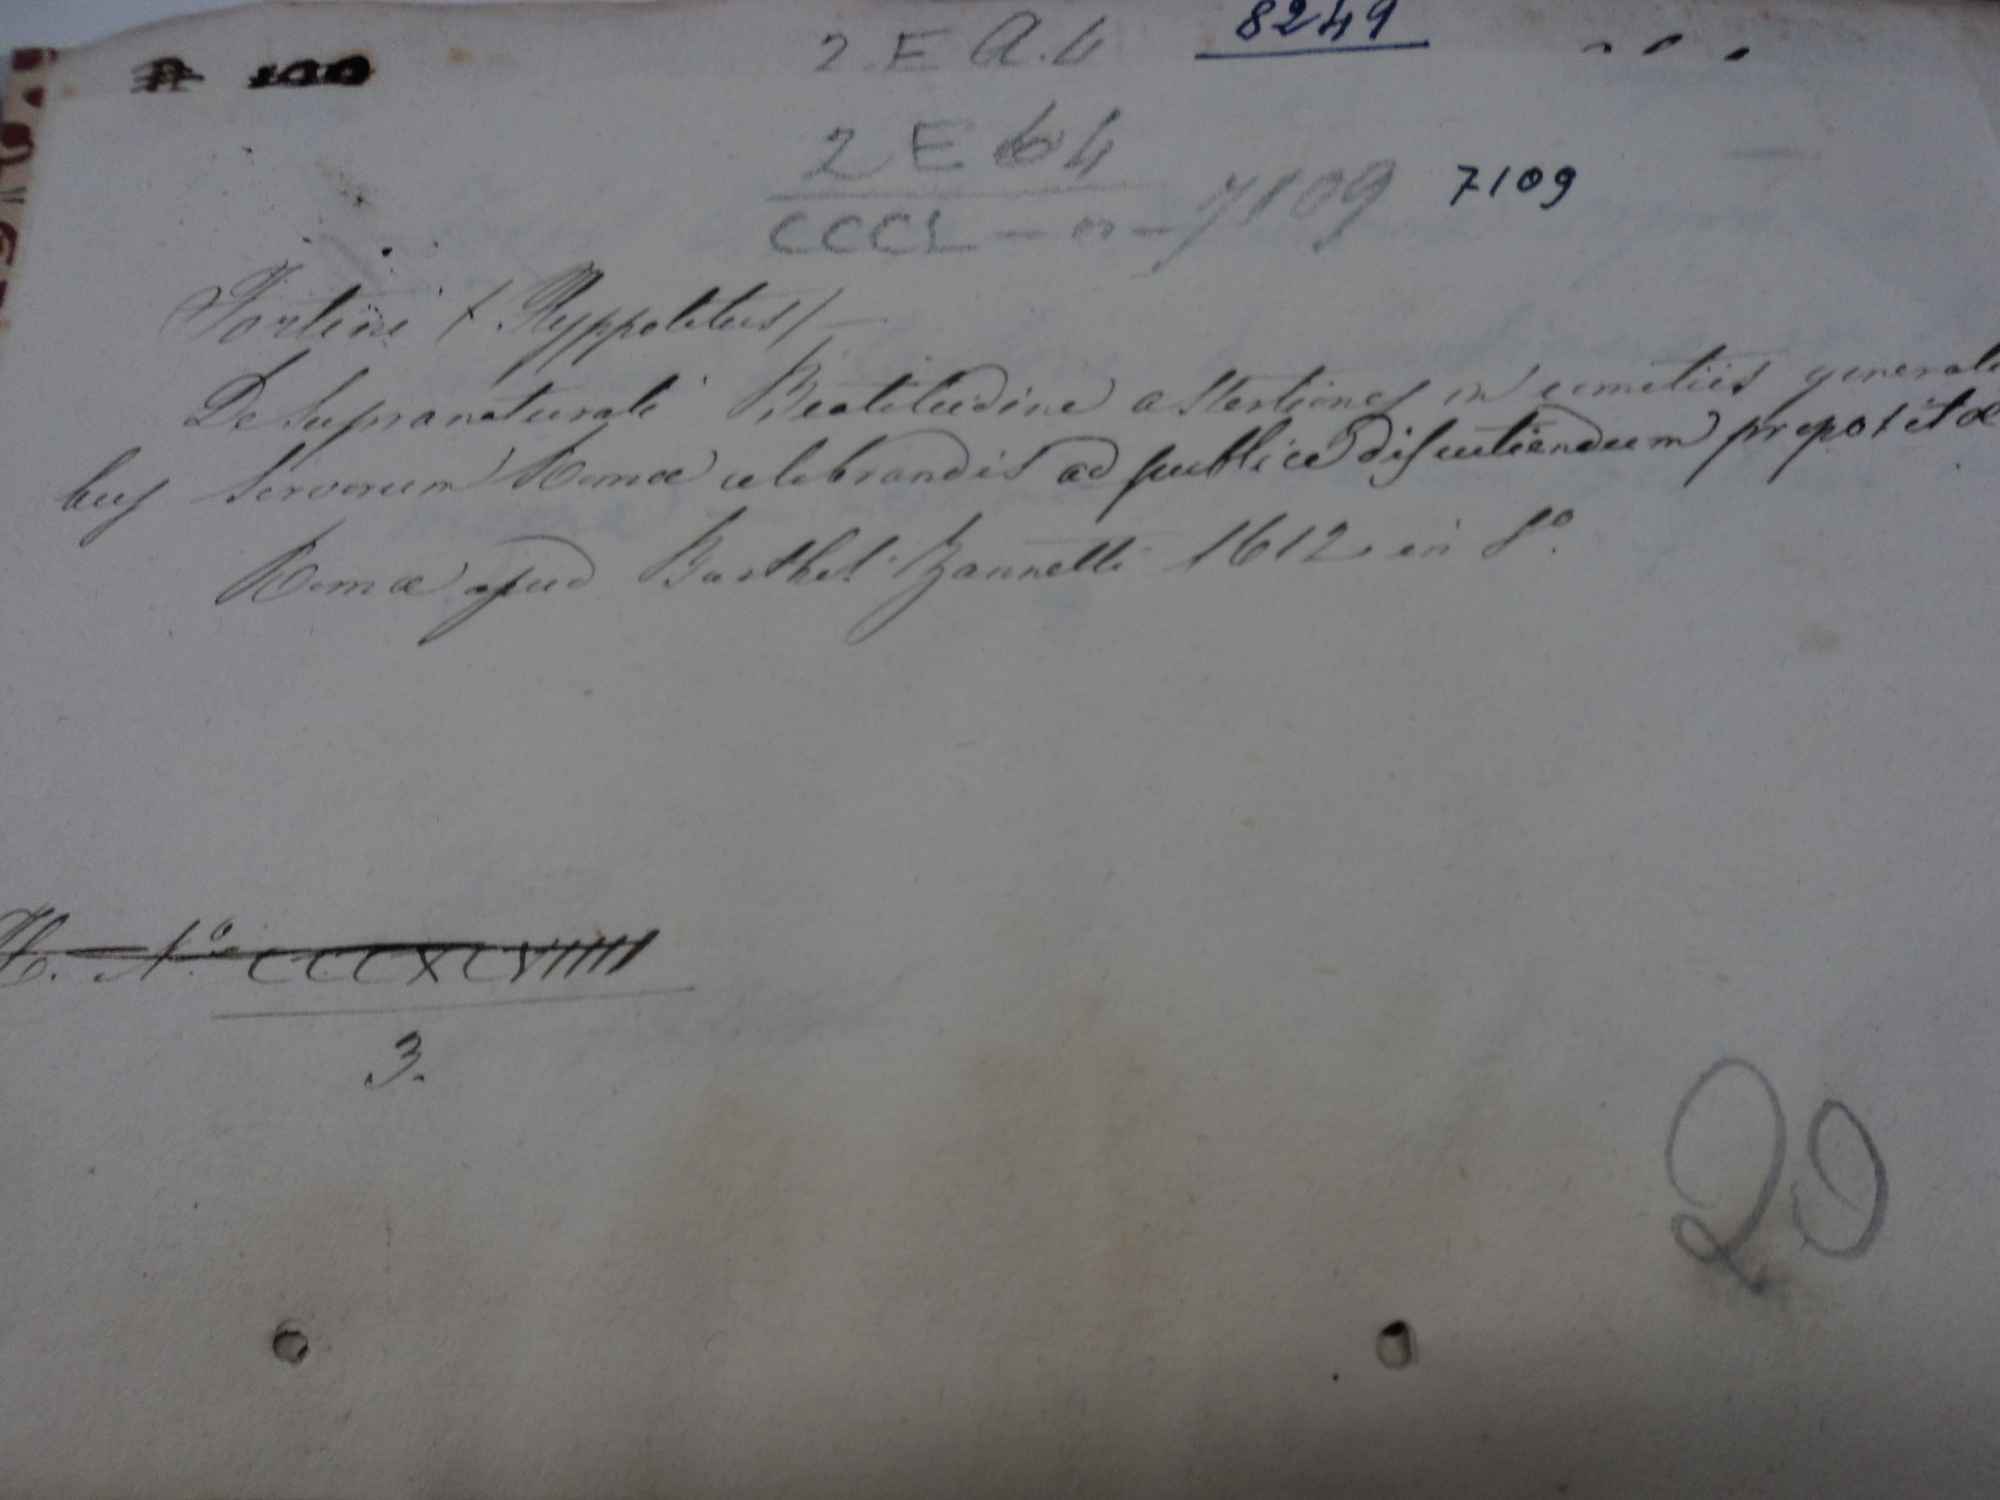 8249
2.E A.4
2 E 4
CCCL — n — 7109 7109
(Hyppolitus)
De supranaturali Beatitudine assertiones in comitiis generali
bus Servorum Romæ celebrandis ad publice discutiendum propositæ
Romæ apud Barthol. Zannetti 1612 in 8º.
N.º CCCXCVIIII
3.
20